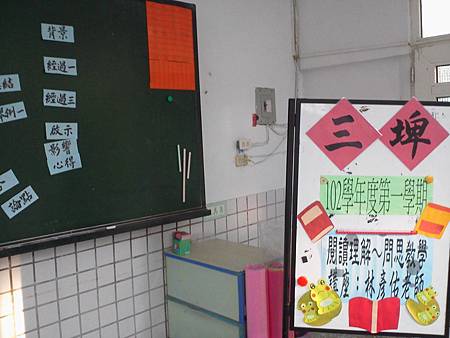 背景
經過一
經過三
啟示
影響
心得
結
論點
三埤
102學年度第一學期
閱讀理解～問思教學
林彥佑老師